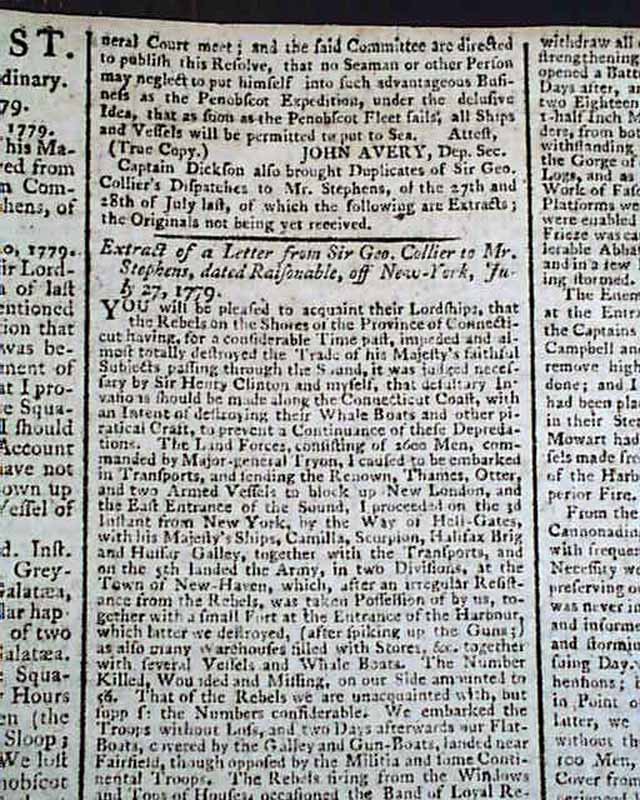 ST.
dinary.
79.
1779.
his Ma-
ved from
n Com-
hens, of
o, 1779.
ir Lord-
a of last
entioned
tion that
was be-
nent of
at I pro-
e Squa-
I should
Account
have not
own up
Vessel of
d. Inst.
Grey-
alatæa,
lar hap-
of two
alatæa.
e Squa-
Hours
en (the
Sloop;
We lost
nobscot
neral Court meet; and the said Committee are directed
to publish this Resolve, that no Seaman or other Person
may neglect to put himself into such advantageous Busi-
ness as the Penobscot Expedition, under the delusive
Idea, that as soon as the Penobscot Fleet sails, all Ships
and Vessels will be permitted to put to Sea. Attest,
(True Copy.) JOHN AVERY, Dep. Sec.
Captain Dickson also brought Duplicates of Sir Geo.
Collier's Dispatches to Mr. Stephens, of the 27th and
28th of July last, of which the following are Extracts;
the Originals not being yet received.
Extract of a Letter from Sir Geo. Collier to Mr.
Stephens, dated Raisonable, off New-York, Ju-
ly 27, 1779.
YOU will be pleased to acquaint their Lordships, that
the Rebels on the Shores of the Province of Connecti-
cut having, for a considerable Time past, impeded and al-
most totally destroyed the Trade of his Majesty's faithful
Subjects passing through the Sound, it was judged neces-
sary by Sir Henry Clinton and myself, that desultary In-
vasions should be made along the Connecticut Coast, with
an Intent of destroying their Whale Boats and other pi-
ratical Craft, to prevent a Continuance of these Depreda-
tions. The Land Forces, consisting of 2600 Men, com-
manded by Major-general Tryon, I caused to be embarked
in Transports, and sending the Renown, Thames, Otter,
and two Armed Vessels to block up New London, and
the East Entrance of the Sound, I proceeded on the 3d
Instant from New York, by the Way of Hell-Gates,
with his Majesty's Ships, Camilla, Scorpion, Halifax Brig
and Hussar Galley, together with the Transports, and
on the 5th landed the Army, in two Divisions, at the
Town of New-Haven, which, after an irregular Resist-
ance from the Rebels, was taken Possession of by us, to-
gether with a small Fort at the Entrance of the Harbour,
which latter we destroyed, (after spiking up the Guns;)
as also many Warehouses filled with Stores, &c. together
with several Vessels and Whale Boats. The Number
Killed, Wounded and Missing, on our Side amounted to
56. That of the Rebels we are unacquainted with, but
suppose the Numbers considerable. We embarked the
Troops without Loss, and two Days afterwards our Flat-
Boats, covered by the Galley and Gun-Boats, landed near
Fairfield, though opposed by the Militia and some Conti-
nental Troops. The Rebels firing from the Windows
and Tops of Houses, occasioned the Band of Loyal Re-
withdraw all
strengthening
opened a Batt
Days after, an
two Eighteen
t-half Inch M
ders, from bo
withstanding
the Gorge of
Logs, and as
Work of Fas
Platforms we
were enabled
Frieze was ca
lerable Abba
and in a few
ing stormed.
The Enem
at the Entra
the Captains
Campbell an
remove high
done; and I
had been pla
in their Stea
Mowart had
sels made fre
of the Harb
perior Fire.
From the
Cannonadin
with frequen
Necessity we
preserving o
was never in
and informe
and stormin
suing Day.
hensions; b
in Point o
latter, we
without th
100 Men,
Cover from